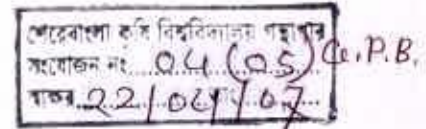 শেরেবাংলা কৃষি বিশ্ববিদ্যালয় গন্থাগার
সংযোজন নং 04 (05) G.P.B.
স্বাক্ষর 22/04/07